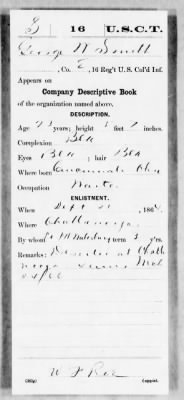 S 16 U.S.C.T.
George W Small
, Co. E, 16 Reg't U.S. Col'd Inf.
Appears on
Company Descriptive Book
of the organization named above.
DESCRIPTION.
Age 23 years; height 5 feet 7 inches.
Complexion Blk
Eyes Blk; hair Blk
Where born Cincinnati, Ohio
Occupation Waiter
ENLISTMENT.
When Sept, 1864.
Where Chattanooga
By whom term 3 y'rs.
Remarks: at Chatta
nooga Tenn Mch
/66
(383g) Copyist.